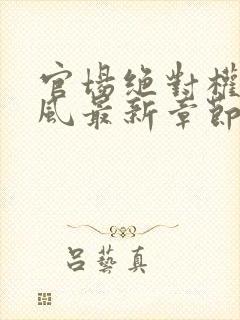 官場絕對權
風最新章節
呂藝真